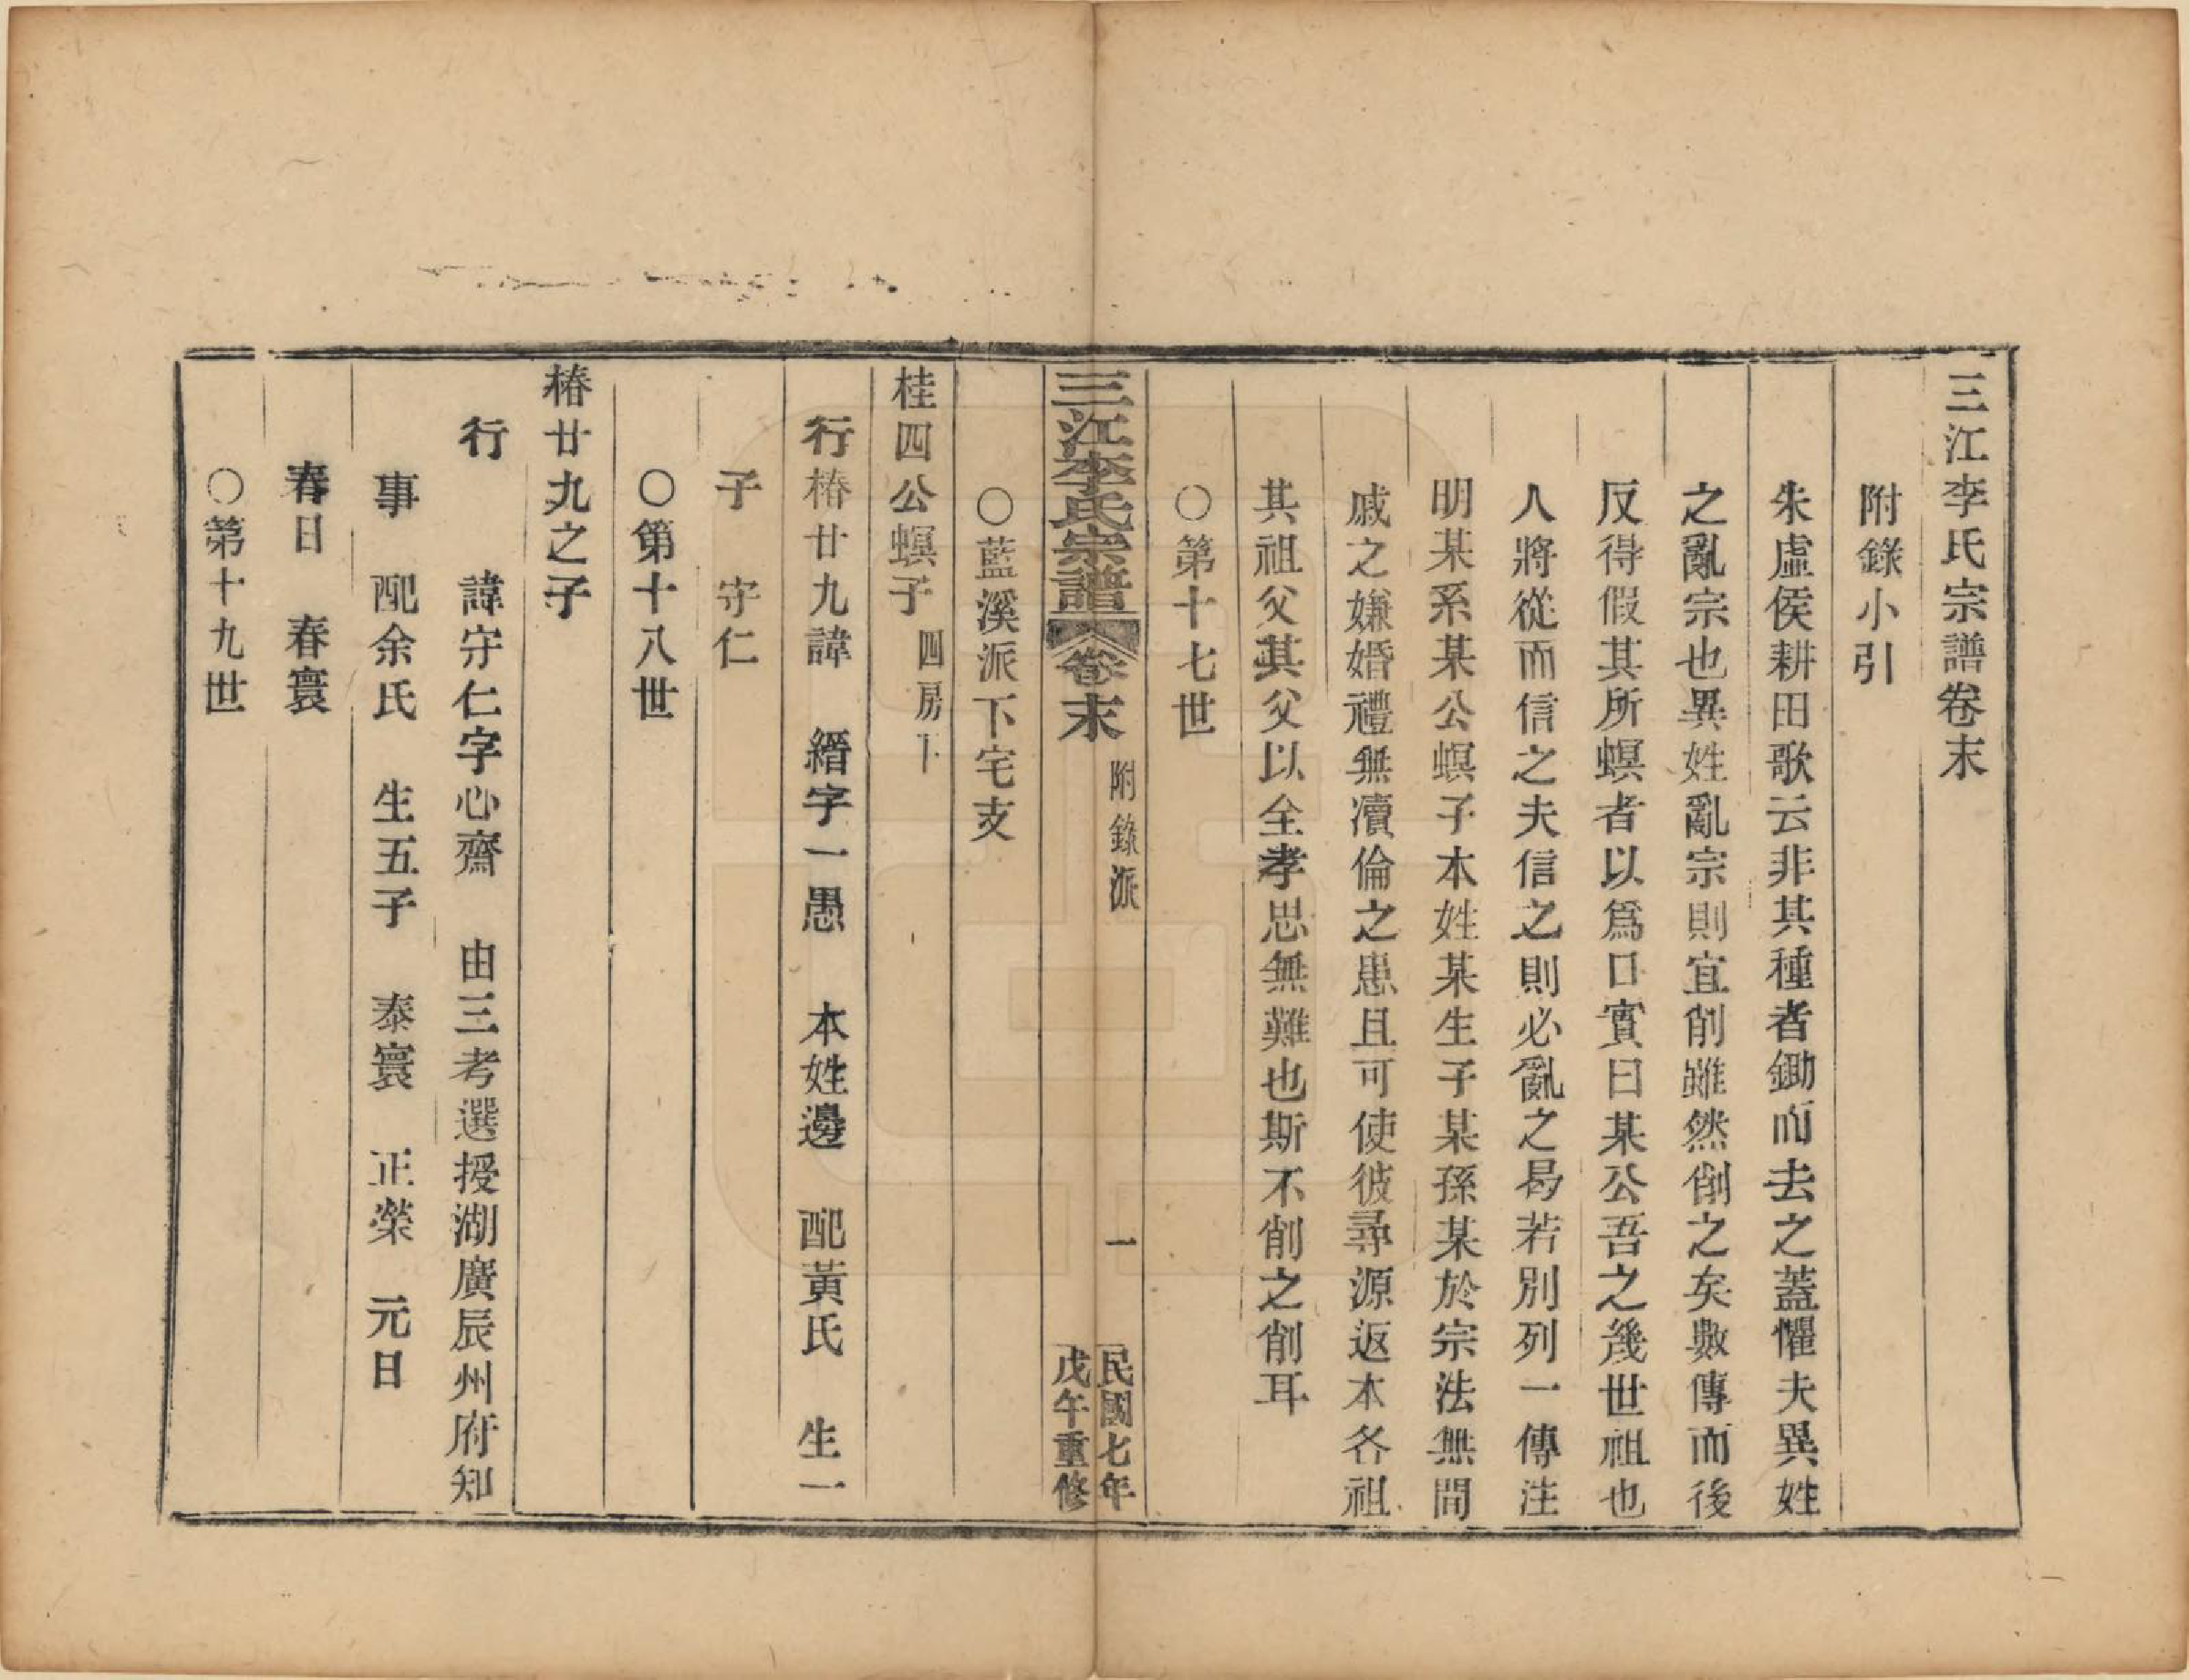 三江李氏宗譜卷末
附錄小引
朱虛侯耕田歌云非其種者鋤而去之蓋懼夫異姓
之亂宗也異姓亂宗則宜削雖然削之矣數傳而後
反得假其所螟者以爲口實曰某公吾之幾世祖也
人將從而信之夫信之則必亂之曷若別列一傳注
明某系某公螟子本姓某生子某孫某於宗法無間
戚之嫌婚禮無瀆倫之患且可使彼尋源返本各祖
其祖父其父以全孝思無難也斯不削之削耳
〇第十七世
三江李氏宗譜
卷末
附錄派
一
民國七年
戊午重修
〇藍溪派下宅支
桂四公螟子 四房下
行椿廿九諱 縉字一愚 本姓邊 配黃氏 生一
子 守仁
〇第十八世
椿廿九之子
行 諱守仁字心齋 由三考選授湖廣辰州府知
事 配余氏 生五子 泰寰 正榮 元日
春日 春寰
〇第十九世